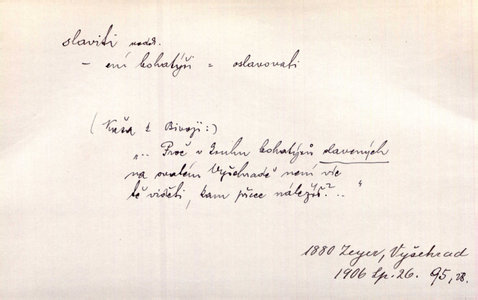 slaviti nedok.
– ení bohatýři = oslavovati
(Kaša k Bivoji:)
„.. Proč v kruhu bohatýrů slavených
na svatém Vyšehradě není víc
tě viděti, kam přece náležíš?.."
1880 Zeyer, Vyšehrad
1906 Sp. 26. 95, 28.